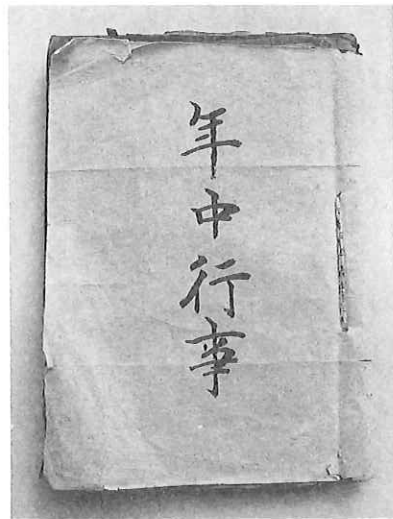 年中行事